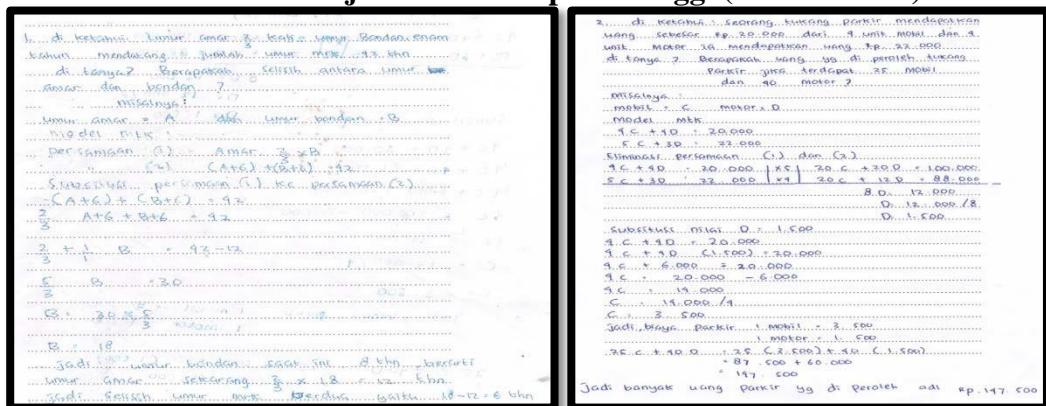 1. di ketahui : Umur amar 2/3 kali umur Bondan enam
tahun mendatang jumlah umur mrk 42 thn
di tanya? Berapakah selisih antara umur
amar dan bondan ?
misalnya :
umur amar = A umur bondan = B
model mtk :
persamaan (1) Amar 2/3 x B
(2) (A+6) + (B+6) = 42
Substitusi persamaan (1) ke persamaan (2)
(A+6) + (B+6) = 42
2/3 A+6 + B+6 = 42
2/3 + 1/1 B = 42-12
5/3 B = 30
B = 30 x 5/3
B = 18
Jadi umur bondan saat ini 8 thn berarti
umur amar sekarang 2/3 x 18 = 12 thn
Jadi selisih umur mrk berdua yaitu 18-12 = 6 thn
2. di ketahui : seorang tukang parkir mendapatkan
uang sebesar Rp. 20.000 dari 4 unit mobil dan 4
unit motor ia mendapatkan uang Rp. 22.000
di tanya ? Berapakah uang yg di peroleh tukang
parkir jika terdapat 25 mobil
dan 40 motor ?
misalnya :
mobil = C motor = D
model mtk
4 C + 4 D = 20.000
5 C + 3 D = 22.000
Eliminasi persamaan (1) dan (2)
4 C + 4 D = 20.000 | x5 | 20 C + 20 D = 100.000
5 C + 3 D = 22.000 | x4 | 20 C + 12 D = 88.000
8 D = 12.000
D = 12.000 /8
D = 1.500
Substitusi nilai D = 1.500
4 C + 4 D = 20.000
4 C + 4 D (1.500) = 20.000
4 C + 6.000 = 20.000
4 C = 20.000 - 6.000
4 C = 14.000
C = 14.000 /4
C = 3.500
Jadi, biaya parkir 1 mobil = 3.500
1 motor = 1.500
25 C + 40 D = 25 (3.500) + 40 (1.500)
= 87.500 + 60.000
= 147.500
Jadi banyak uang parkir yg di peroleh adl Rp.147.500